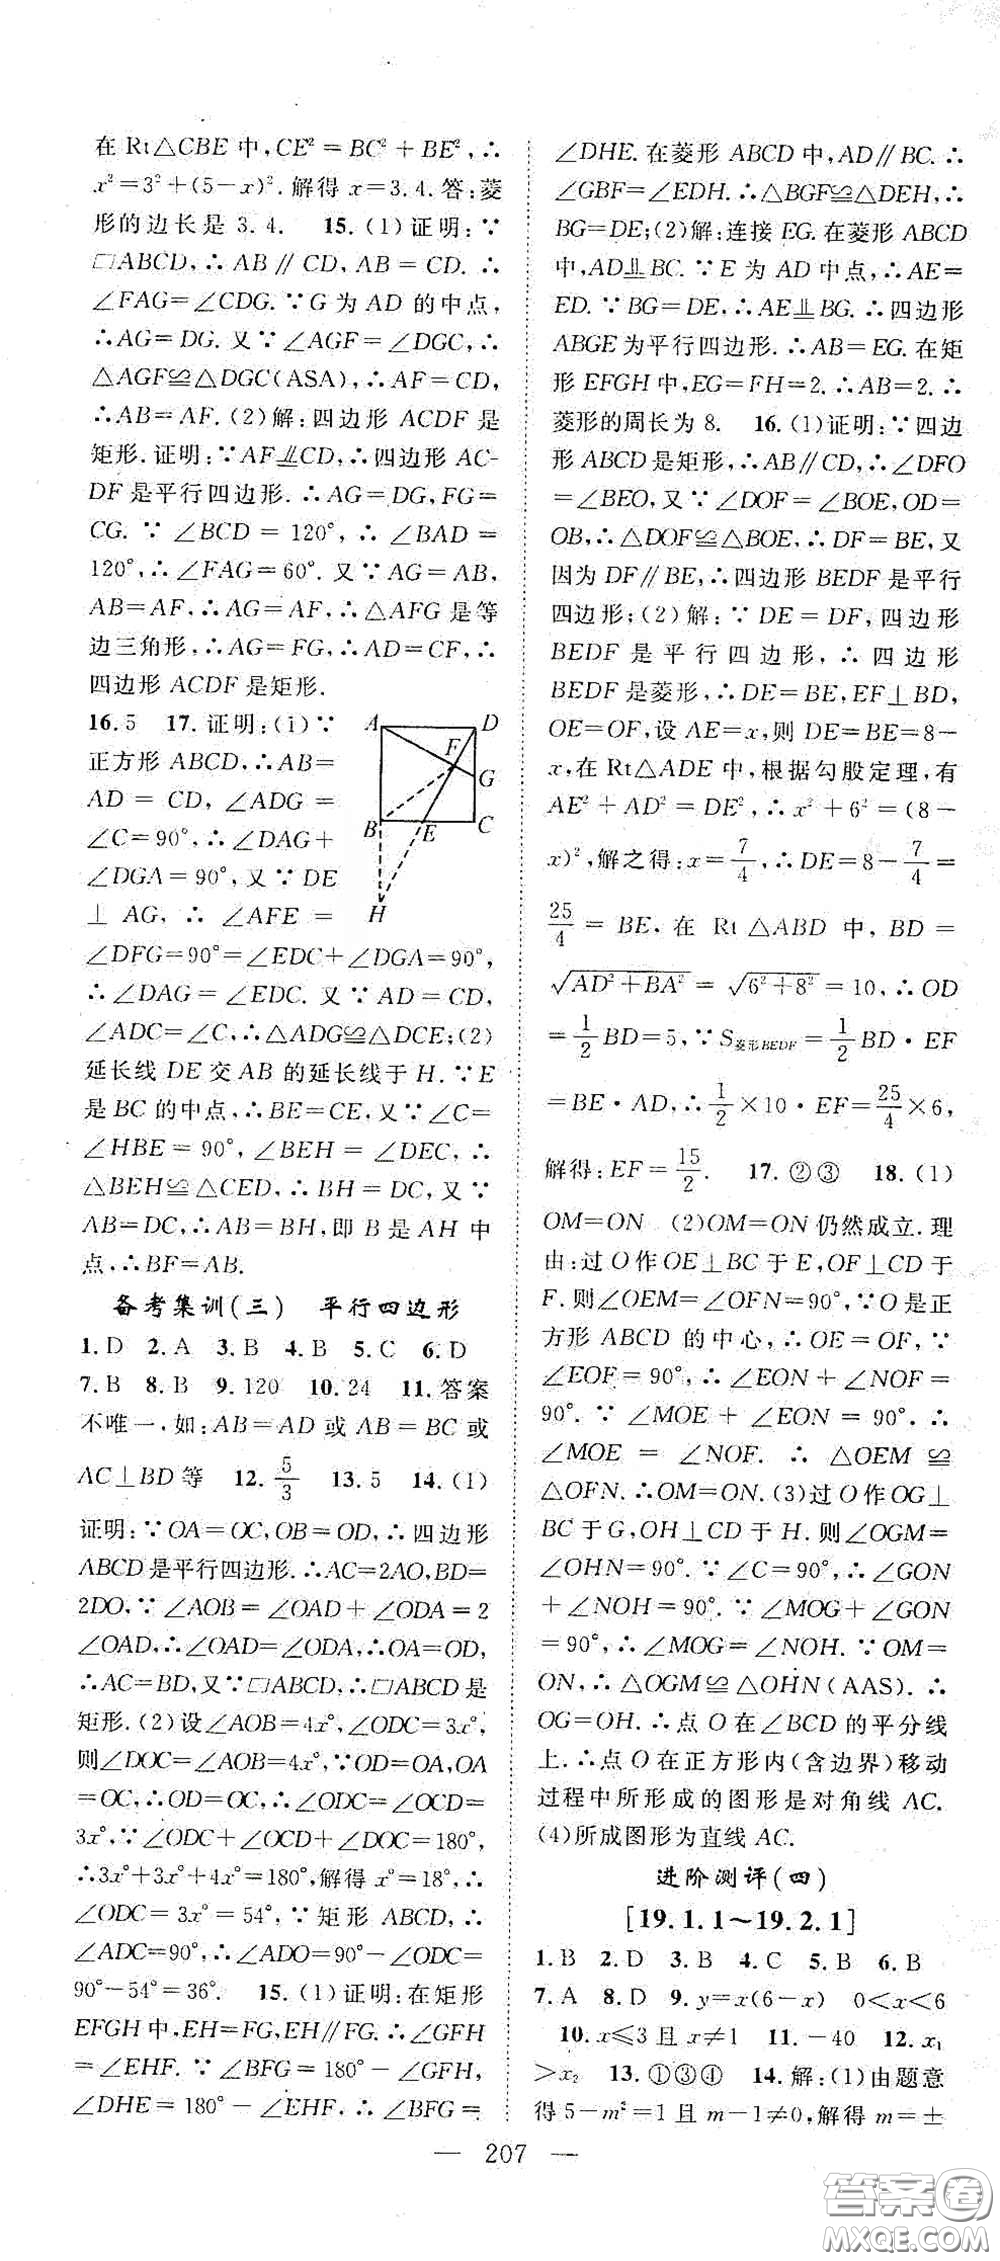 在 Rt△CBE 中,CE²=BC²+BE²,∴
x²=3²+(5-x)².解得 x=3.4.答:菱
形的边长是 3.4. 15.(1)证明:∵
□ABCD,∴AB∥CD,AB=CD.∴
∠FAG=∠CDG.∵G 为 AD 的中点,
∴AG=DG.又∵∠AGF=∠DGC,∴
△AGF≌△DGC(ASA),∴AF=CD,
∴AB=AF.(2)解:四边形 ACDF 是
矩形.证明:∵AF⫫CD,∴四边形 AC-
DF 是平行四边形.∴AG=DG,FG=
CG.∵∠BCD=120°,∴∠BAD=
120°,∴∠FAG=60°.又∵AG=AB,
AB=AF,∴AG=AF,∴△AFG 是等
边三角形,∴AG=FG,∴AD=CF,∴
四边形 ACDF 是矩形.
16.5 17.证明:(1)∵
正方形 ABCD,∴AB=
AD=CD,∠ADG=
∠C=90°,∴∠DAG+
∠DGA=90°,又∵DE
⊥AG,∴∠AFE=
A D F G B E C H
∠DFG=90°=∠EDC+∠DGA=90°,
∴∠DAG=∠EDC.∵AD=CD,
∠ADC=∠C,∴△ADG≌△DCE;(2)
延长线 DE 交 AB 的延长线于 H.∵E
是 BC 的中点,∴BE=CE,又∵∠C=
∠HBE=90°,∠BEH=∠DEC,∴
△BEH≌△CED,∴BH=DC,又∵
AB=DC,∴AB=BH,即 B 是 AH 中
点,∴BF=AB.
备考集训(三) 平行四边形
1.D 2.A 3.B 4.B 5.C 6.D
7.B 8.B 9.120 10.24 11.答案
不唯一,如:AB=AD 或 AB=BC 或
AC⊥BD 等 12.5/3 13.5 14.(1)
证明:∵OA=OC,OB=OD,∴四边形
ABCD 是平行四边形.∴AC=2AO,BD=
2DO,∵∠AOB=∠OAD+∠ODA=2
∠OAD,∴∠OAD=∠ODA,∴OA=OD,
∴AC=BD,又∵□ABCD,∴□ABCD 是
矩形.(2)设∠AOB=4x°,∠ODC=3x°,
则∠DOC=∠AOB=4x°.∵OD=OA,OA
=OC,∴OD=OC,∴∠ODC=∠OCD=
3x°,∵∠ODC+∠OCD+∠DOC=180°,
∴3x°+3x°+4x°=180°,解得 x°=18°,∴
∠ODC=3x°=54°,∵矩形 ABCD,∴
∠ADC=90°,∴∠ADO=∠ADC-∠ODC=
90°-54°=36°. 15.(1)证明:在矩形
EFGH 中,EH=FG,EH∥FG.∴∠GFH
=∠EHF.∵∠BFG=180°-∠GFH,
∠DHE=180°-∠EHF.∴∠BFG=
∠DHE.在菱形 ABCD 中,AD∥BC.∴
∠GBF=∠EDH.∴△BGF≌△DEH,∴
BG=DE;(2)解:连接 EG.在菱形 ABCD
中,AD⫫BC.∵E 为 AD 中点,∴AE=
ED.∵BG=DE,∴AE⫫BG.∴四边形
ABGE 为平行四边形.∴AB=EG.在矩
形 EFGH 中,EG=FH=2.∴AB=2.∴
菱形的周长为 8. 16.(1)证明:∵四边
形 ABCD 是矩形,∴AB∥CD,∴∠DFO
=∠BEO,又∵∠DOF=∠BOE,OD=
OB,∴△DOF≌△BOE,∴DF=BE,又
因为 DF∥BE,∴四边形 BEDF 是平行
四边形;(2)解:∵DE=DF,四边形
BEDF 是平行四边形,∴四边形
BEDF 是菱形,∴DE=BE,EF⊥BD,
OE=OF,设 AE=x,则 DE=BE=8-
x,在 Rt△ADE 中,根据勾股定理,有
AE²+AD²=DE²,∴x²+6²=(8-
x)²,解之得:x=7/4,∴DE=8-7/4=
25/4=BE,在 Rt△ABD 中,BD=
√(AD²+BA²)=√(6²+8²)=10,∴OD
=1/2BD=5,∵S菱形BEDF=1/2BD·EF
=BE·AD,∴1/2×10·EF=25/4×6,
解得:EF=15/2. 17.②③ 18.(1)
OM=ON (2)OM=ON 仍然成立.理
由:过 O 作 OE⊥BC 于 E,OF⊥CD 于
F.则∠OEM=∠OFN=90°,∵O 是正
方形 ABCD 的中心,∴OE=OF,∵
∠EOF=90°.∴∠EON+∠NOF=
90°.∵∠MOE+∠EON=90°.∴
∠MOE=∠NOF.∴△OEM≌
△OFN.∴OM=ON.(3)过 O 作 OG⊥
BC 于 G,OH⊥CD 于 H.则∠OGM=
∠OHN=90°.∵∠C=90°.∴∠GON
+∠NOH=90°.∵∠MOG+∠GON
=90°,∴∠MOG=∠NOH.∵OM=
ON,∴△OGM≌△OHN(AAS).∴
OG=OH.∴点 O 在∠BCD 的平分线
上.∴点 O 在正方形内(含边界)移动
过程中所形成的图形是对角线 AC.
(4)所成图形为直线 AC.
进阶测评(四)
[19.1.1~19.2.1]
1.B 2.D 3.B 4.C 5.B 6.B
7.A 8.D 9.y=x(6-x) 0<x<6
10.x≤3 且 x≠1 11.-40 12.x₁
>x₂ 13.①③④ 14.解:(1)由题意
得 5-m²=1 且 m-1≠0,解得 m=±
— 207 —
答案圈
MXQE.COM